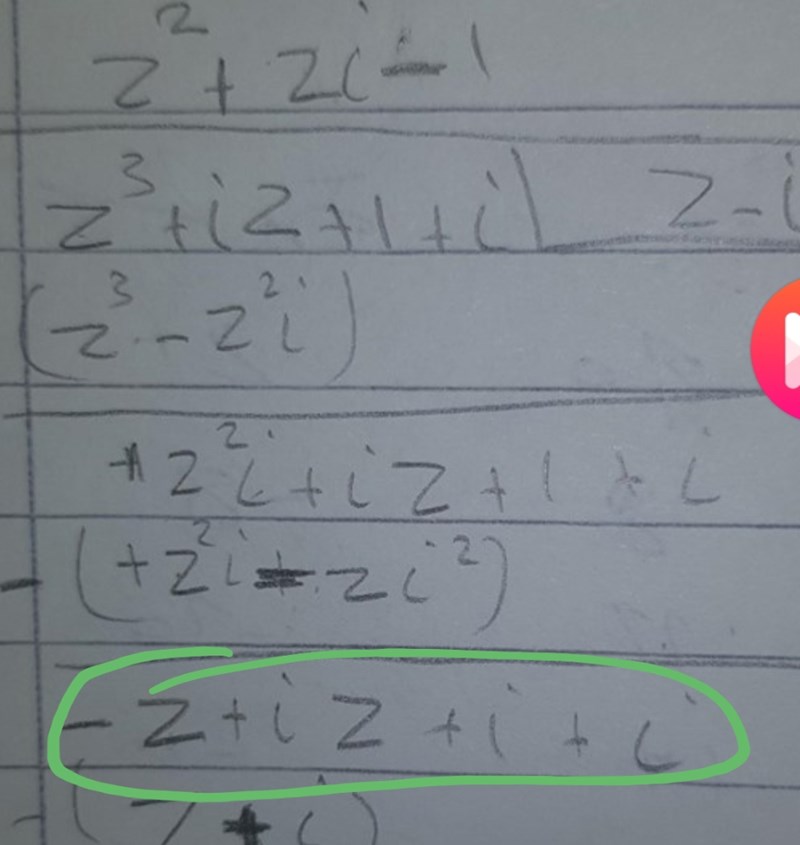 z² + zi - 1
z³ + iz + 1 + i | z - i
(z³ - z²i)
+ z²i + iz + 1 + i
- (+ z²i - zi²)
- z + iz + i + i